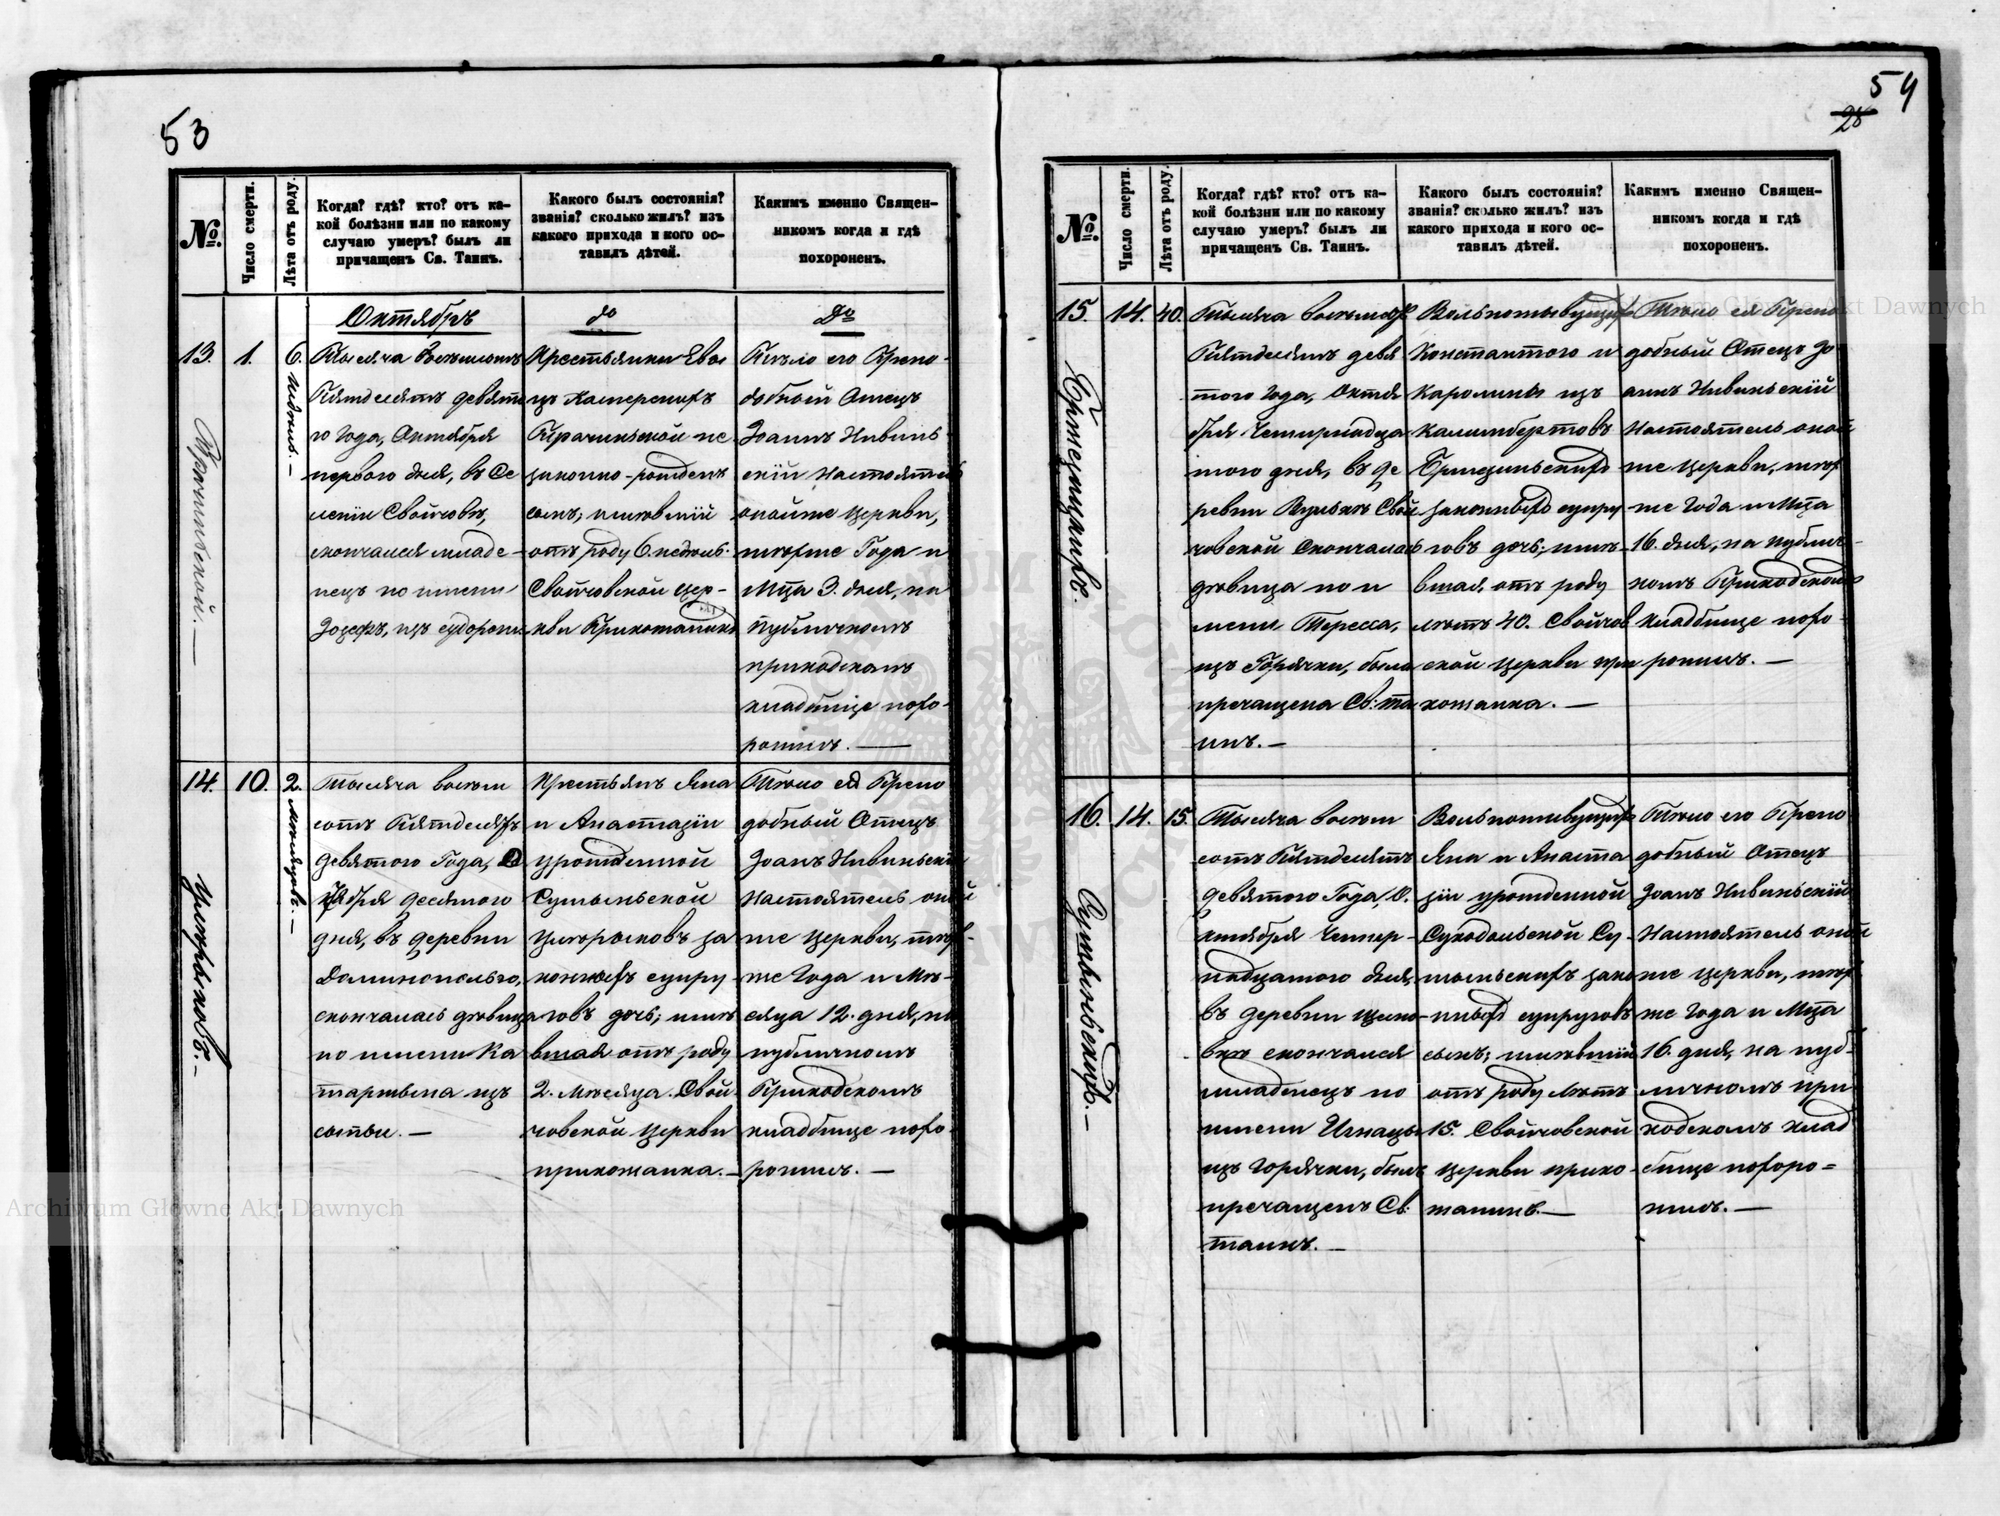 53
№.
Число смерти.
Лѣта отъ роду.
Когда? гдѣ? кто? отъ ка-
кой болѣзни или по какому
случаю умеръ? былъ ли
причащенъ Св. Таинъ.
Какого былъ состоянія?
званія? сколько жилъ? изъ
какого прихода и кого ос-
тавилъ дѣтей.
Какимъ именно Священ-
никомъ когда и гдѣ
похороненъ.
Октябрь
до
До
13.
1.
6. недѣль.—
Тысяча восемьсотъ
Пятдесятъ девята
го Года, Октября
перваго дня, въ Се
леніи Свойчовѣ,
скончался младе-
нецъ по имени
Іозефъ, изъ
Крестьянки Ева
незаконно-рожденъ
сынъ; жившій
отъ роду 6 недѣль.
Свойчовской цер-
кви Прихожанинъ
Тѣло его Препо-
добный Отецъ
Іоаннъ Нивинь-
скій Настоятель
онойже церкви,
тогоже Года и
Мца 3. дня, на
публичномъ
приходскомъ
кладбищѣ похо-
ронилъ.—
14.
10.
2. мѣсяцъ.—
Тысяча восем
сотъ Пятдесятъ
девятого Года, О
ктября десятого
дня, въ деревни
Доминополью,
скончалась дѣвица
по имени Ка
таржына изъ
сыпы.—
Крестьянъ Яна
и Анастазіи
урожденной
за
конныхъ супру
говъ дочь; жив
вшая отъ роду
2. мѣсяца. Свой-
човской церкви
прихожанка.—
Тѣло ея Препо
добный Отецъ
Іоанъ Нивиньскій
Настоятель оной
же церкви, того-
же Года и Мѣ-
сяца 12. дня, на
публичномъ
Приходскомъ
кладбище похо-
ронилъ.—
54
28
№.
Число смерти.
Лѣта отъ роду.
Когда? гдѣ? кто? отъ ка-
кой болѣзни или по какому
случаю умеръ? былъ ли
причащенъ Св. Таинъ.
Какого былъ состоянія?
званія? сколько жилъ? изъ
какого прихода и кого ос-
тавилъ дѣтей.
Какимъ именно Священ-
никомъ когда и гдѣ
похороненъ.
15.
14.
40.
Тысяча восемьсот
Пятдесятъ девя
того Года, Октя
бря Четырнадца
того дня, въ де
ревни Вулькѣ Свой
човской скончалась
дѣвица по и
мени Тересса,
изъ Горячки, была
пречащена Св: та
инъ.—
Вольноживущихъ
Константого и
Каролины изъ
законныхъ супру
говъ дочь; жив-
вшая, отъ роду
лѣтъ 40. Свойчов
ской церкви при
хожанка.—
Тѣло ея Препо
добный Отецъ Іо
аннъ Нивиньскій
Настоятель оной
же церкви, того
же Года и Мца
16. дня, на публич-
номъ Приходскомъ
кладбище похо-
ронилъ.—
16.
14.
15.
Тысяча восем
сотъ Пятдесятъ
девятого Года, О.
ктября Четыр-
надцатого дня,
въ деревни
скончался
младенецъ по
имени Игнацы
изъ Горячки, былъ
пречащенъ Св:
таинъ.—
Вольноживущихъ
Яна и Анаста
зіи урожденной
Суходольской Су-
зако
нныхъ супруговъ
сынъ; жившій
отъ роду лѣтъ
15. Свойчовской
церкви прихо-
жанинъ.—
Тѣло его Препо
добный Отецъ
Іоанъ Нивиньскій
Настоятель оной
же церкви, того
же Года и Мца
16. дня, на пуб-
личномъ при
ходскомъ клад
бище похоро=
нилъ.—
Archiwum Główne Akt Dawnych
Archiwum Główne Akt Dawnych